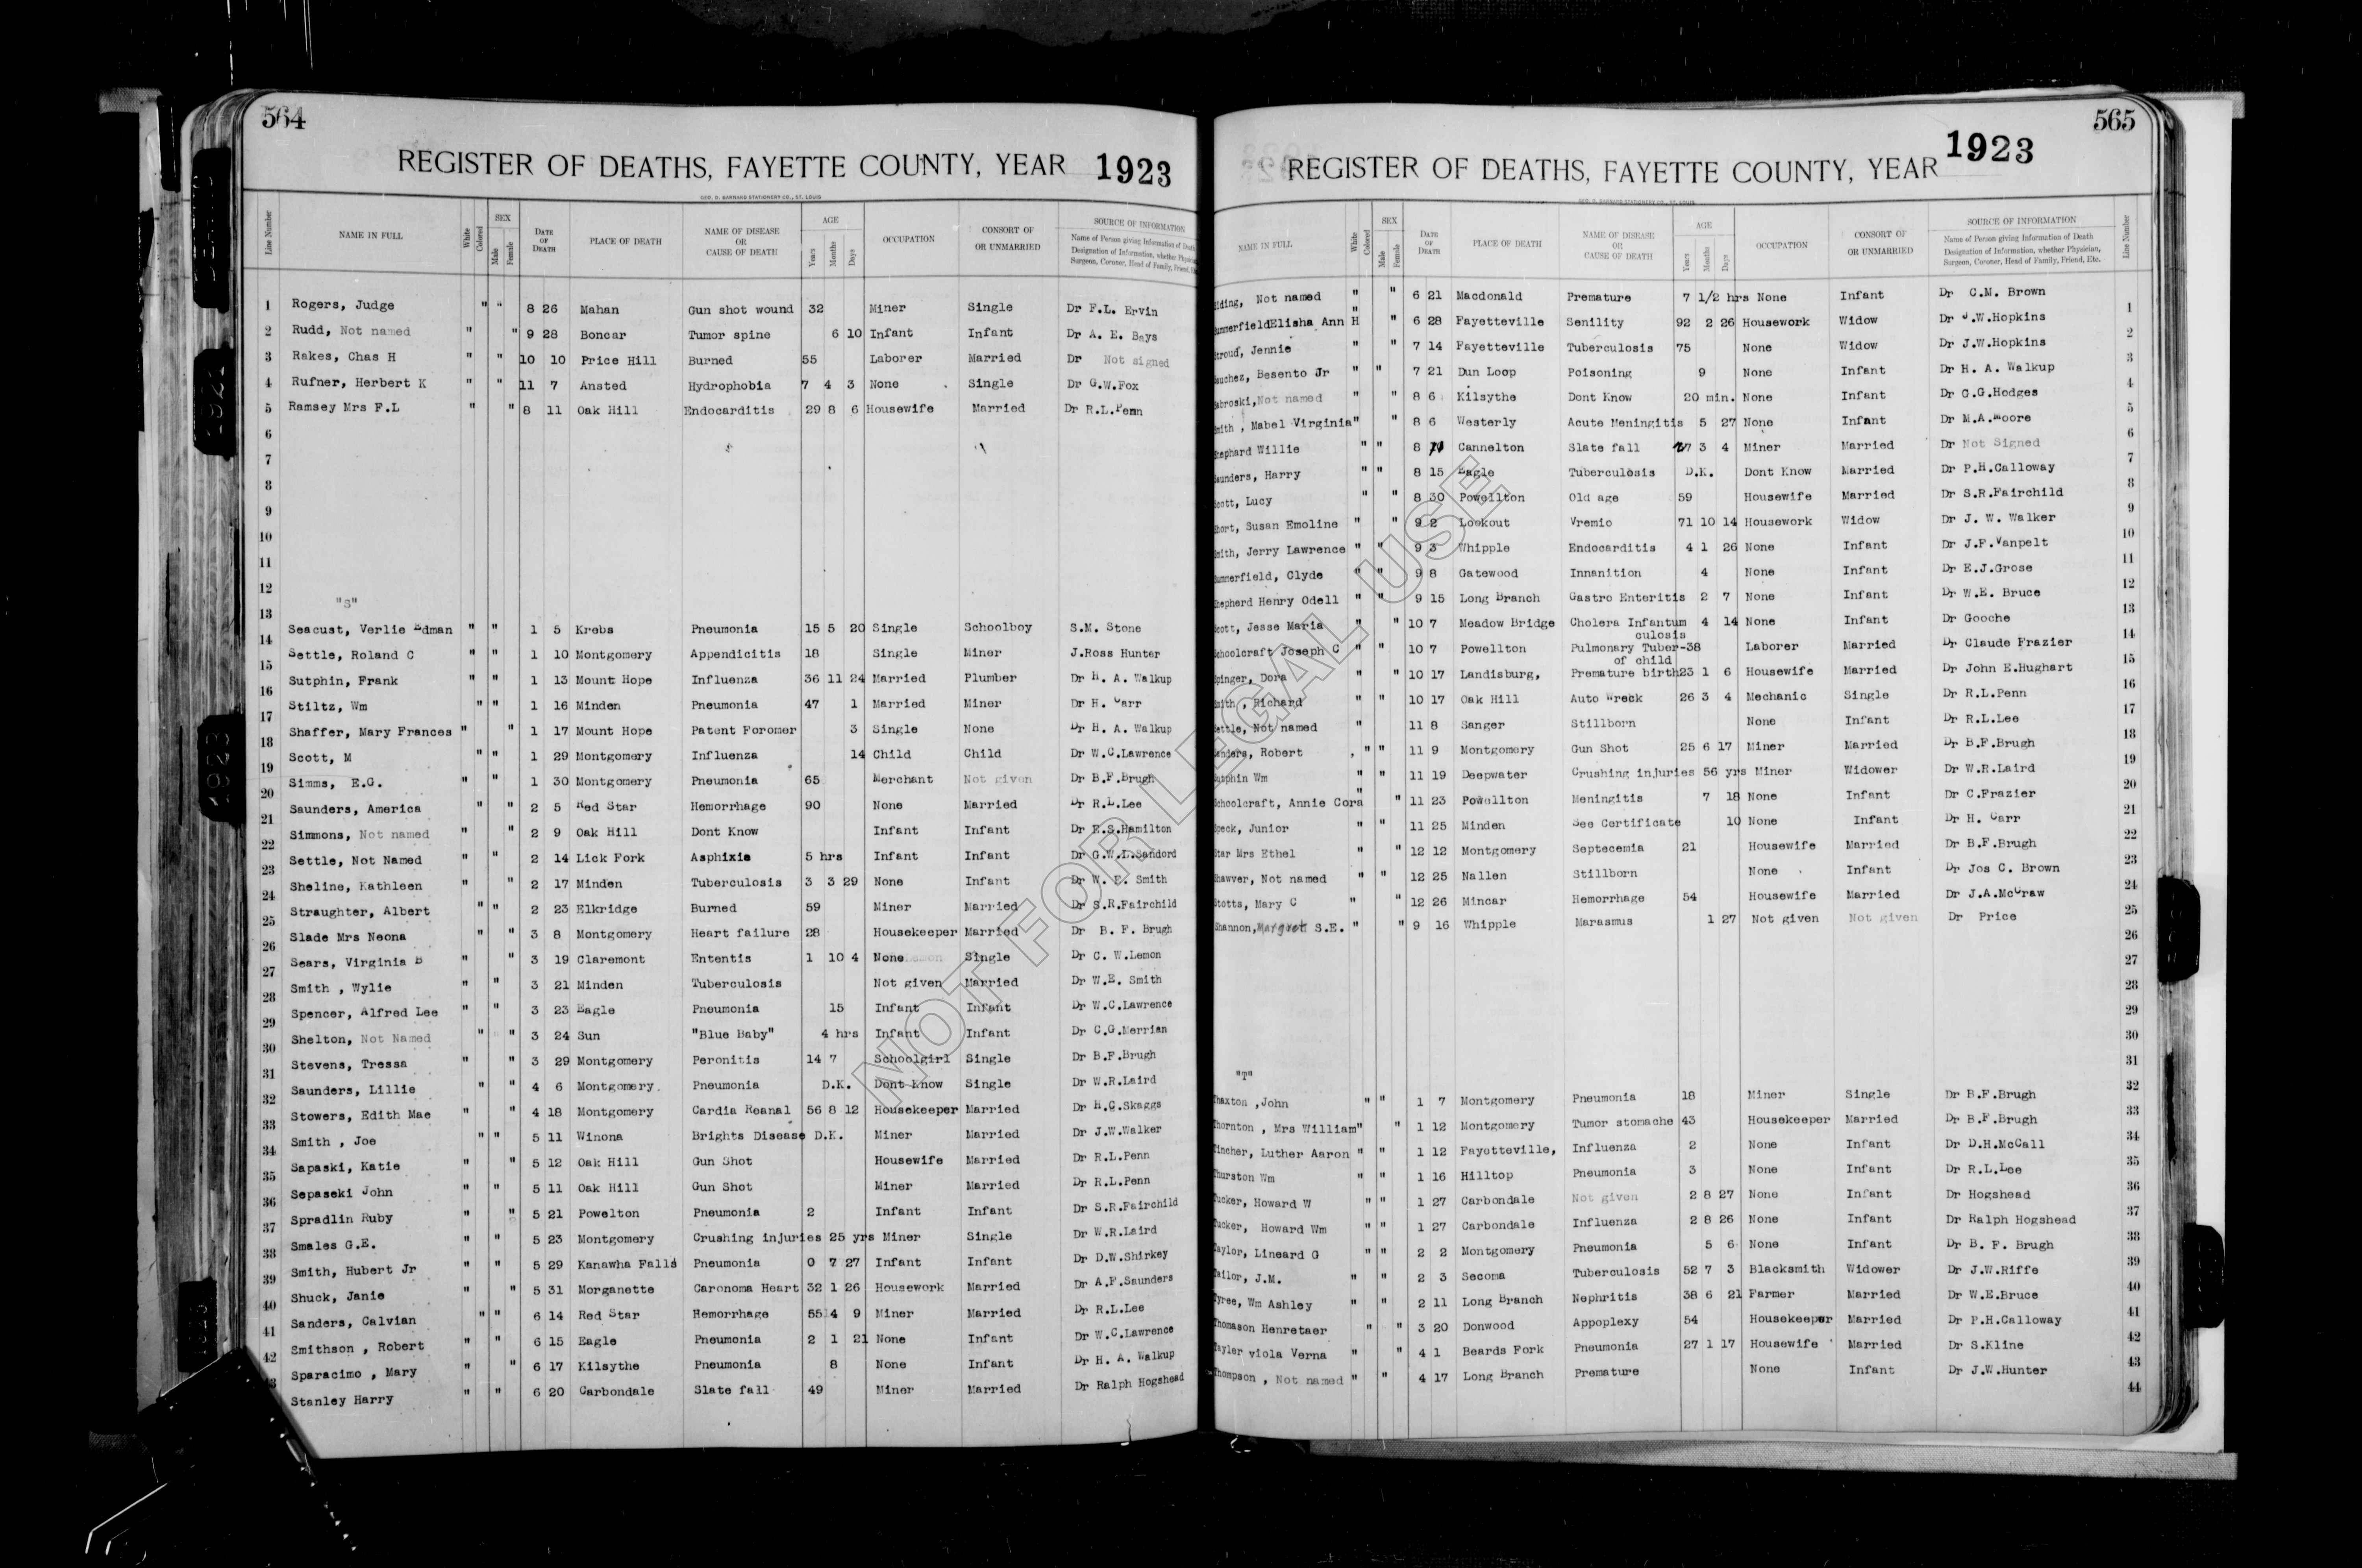 564
REGISTER OF DEATHS, FAYETTE COUNTY, YEAR 1923
GEO. D. BARNARD STATIONERY CO., ST. LOUIS
Line Number NAME IN FULL White Colored SEX Male Female DATE OF DEATH PLACE OF DEATH NAME OF DISEASE OR CAUSE OF DEATH AGE Years Months Days OCCUPATION CONSORT OF OR UNMARRIED SOURCE OF INFORMATION
Name of Person giving Information of Death
Designation of Information, whether
Surgeon, Coroner, Head of Family, Friend,
1 Rogers, Judge " " 8 26 Mahan Gun shot wound 32 Miner Single Dr F.L. Ervin
2 Rudd, Not named " " 9 28 Boncar Tumor spine 6 10 Infant Infant Dr A. E. Bays
3 Rakes, Chas H " " 10 10 Price Hill Burned 55 Laborer Married Dr Not signed
4 Rufner, Herbert K " " 11 7 Ansted Hydrophobia 7 4 3 None Single Dr G.W.Fox
5 Ramsey Mrs F.L " " 8 11 Oak Hill Endocarditis 29 8 6 Housewife Married Dr R.L.Penn
6
7
8
9
10
11
12
13 "S"
14 Seacust, Verlie Edman " " 1 5 Krebs Pneumonia 15 5 20 Single Schoolboy S.M. Stone
15 Settle, Roland C " " 1 10 Montgomery Appendicitis 18 Single Miner J.Ross Hunter
16 Sutphin, Frank " " 1 13 Mount Hope Influenza 36 11 24 Married Plumber Dr H. A. Walkup
17 Stiltz, Wm " " 1 16 Minden Pneumonia 47 1 Married Miner Dr H. Carr
18 Shaffer, Mary Frances " " 1 17 Mount Hope Patent Foromer 3 Single None Dr H. A. Walkup
19 Scott, M " " 1 29 Montgomery Influenza 14 Child Child Dr W.C.Lawrence
20 Simms, E.G. " " 1 30 Montgomery Pneumonia 65 Merchant Not given Dr B.F.Brugh
21 Saunders, America " " 2 5 Red Star Hemorrhage 90 None Married Dr R.L.Lee
22 Simmons, Not named " " 2 9 Oak Hill Dont Know Infant Infant Dr E.S.Hamilton
23 Settle, Not Named " " 2 14 Lick Fork Asphixia 5 hrs Infant Infant Dr G.W.D.Sandord
24 Sheline, Kathleen " " 2 17 Minden Tuberculosis 3 3 29 None Infant Dr W. E. Smith
25 Straughter, Albert " " 2 23 Elkridge Burned 59 Miner Married Dr S.R.Fairchild
26 Slade Mrs Neona " " 3 8 Montgomery Heart failure 28 Housekeeper Married Dr B. F. Brugh
27 Sears, Virginia B " " 3 19 Claremont Ententis 1 10 4 None Single Dr C. W.Lemon
28 Smith , Wylie " " 3 21 Minden Tuberculosis Not given Married Dr W.E. Smith
29 Spencer, Alfred Lee " " 3 23 Eagle Pneumonia 15 Infant Infant Dr W.C.Lawrence
30 Shelton, Not Named " " 3 24 Sun "Blue Baby" 4 hrs Infant Infant Dr C.G.Merrian
31 Stevens, Tressa " " 3 29 Montgomery Peronitis 14 7 Schoolgirl Single Dr B.F.Brugh
32 Saunders, Lillie " " 4 6 Montgomery. Pneumonia D.K. Dont Know Single Dr W.R.Laird
33 Stowers, Edith Mae " " 4 18 Montgomery Cardia Reanal 56 8 12 Housekeeper Married Dr H.C.Skaggs
34 Smith , Joe " " 5 11 Winona Brights Disease D.K. Miner Married Dr J.W.Walker
35 Sapaski, Katie " " 5 12 Oak Hill Gun Shot Housewife Married Dr R.L.Penn
36 Sepaseki John " " 5 11 Oak Hill Gun Shot Miner Married Dr R.L.Penn
37 Spradlin Ruby " " 5 21 Powelton Pneumonia 2 Infant Infant Dr S.R.Fairchild
38 Smales G.E. " " 5 23 Montgomery Crushing injuries 25 yrs Miner Single Dr W.R.Laird
39 Smith, Hubert Jr " " 5 29 Kanawha Falls Pneumonia 0 7 27 Infant Infant Dr D.W.Shirkey
40 Shuck, Janie " " 5 31 Morganette Caronoma Heart 32 1 26 Housework Married Dr A.F.Saunders
41 Sanders, Calvian " " 6 14 Red Star Hemorrhage 55 4 9 Miner Married Dr R.L.Lee
42 Smithson , Robert " " 6 15 Eagle Pneumonia 2 1 21 None Infant Dr W.C.Lawrence
Sparacimo , Mary " " 6 17 Kilsythe Pneumonia 8 None Infant Dr H. A. Walkup
Stanley Harry " " 6 20 Carbondale Slate fall 49 Miner Married Dr Ralph Hogshead
565
REGISTER OF DEATHS, FAYETTE COUNTY, YEAR 1923
GEO. D. BARNARD STATIONERY CO., ST. LOUIS
NAME IN FULL White Colored SEX Male Female DATE OF DEATH PLACE OF DEATH NAME OF DISEASE OR CAUSE OF DEATH AGE Years Months Days OCCUPATION CONSORT OF OR UNMARRIED SOURCE OF INFORMATION Line Number
Name of Person giving Information of Death
Designation of Information, whether Physician,
Surgeon, Coroner, Head of Family, Friend, Etc.
Not named " " 6 21 Macdonald Premature 7 1/2 hrs None Infant Dr C.M. Brown 1
SummerfieldElisha Ann H " " 6 28 Fayetteville Senility 92 2 26 Housework Widow Dr J.W.Hopkins 2
Stroud, Jennie " " 7 14 Fayetteville Tuberculosis 75 None Widow Dr J.W.Hopkins 3
Besento Jr " " 7 21 Dun Loop Poisoning 9 None Infant Dr H. A. Walkup 4
Not named " " 8 6 Kilsythe Dont Know 20 min. None Infant Dr G.G.Hodges 5
Smith , Mabel Virginia " " 8 6 Westerly Acute Meningitis 5 27 None Infant Dr M.A.Moore 6
Shephard Willie " " 8 Cannelton Slate fall 27 3 4 Miner Married Dr Not Signed 7
Saunders, Harry " " 8 15 Eagle Tuberculosis D.K. Dont Know Married Dr P.H.Calloway 8
Scott, Lucy " " 8 30 Powellton Old age 59 Housewife Married Dr S.R.Fairchild 9
Short, Susan Emoline " " 9 2 Lookout Vremio 71 10 14 Housework Widow Dr J. W. Walker 10
Smith, Jerry Lawrence " " 9 3 Whipple Endocarditis 4 1 26 None Infant Dr J.F.Vanpelt 11
Summerfield, Clyde " " 9 8 Gatewood Innanition 4 None Infant Dr E.J.Grose 12
Shepherd Henry Odell " " 9 15 Long Branch Gastro Enteritis 2 7 None Infant Dr W.E. Bruce 13
Scott, Jesse Maria " " 10 7 Meadow Bridge Cholera Infantum 4 14 None Infant Dr Gooche 14
culosis
Schoolcraft Joseph C " " 10 7 Powellton Pulmonary Tuber-38 Laborer Married Dr Claude Frazier 15
of child
Spinger, Dora " " 10 17 Landisburg, Premature birth23 1 6 Housewife Married Dr John E.Hughart 16
Smith , Richard " " 10 17 Oak Hill Auto Wreck 26 3 4 Mechanic Single Dr R.L.Penn 17
Settle, Not named " 11 8 Sanger Stillborn None Infant Dr R.L.Lee 18
Sanders, Robert , " " 11 9 Montgomery Gun Shot 25 6 17 Miner Married Dr B.F.Brugh 19
Sutphin Wm " " 11 19 Deepwater Crushing injuries 56 yrs Miner Widower Dr W.R.Laird 20
Schoolcraft, Annie Cora " " 11 23 Powellton Meningitis 7 18 None Infant Dr C.Frazier 21
Speck, Junior " " 11 25 Minden See Certificate 10 None Infant Dr H. Carr 22
Star Mrs Ethel " " 12 12 Montgomery Septecemia 21 Housewife Married Dr B.F.Brugh 23
Shawver, Not named " " 12 25 Nallen Stillborn None Infant Dr Jos C. Brown 24
Stotts, Mary C " " 12 26 Mincar Hemorrhage 54 Housewife Married Dr J.A.McGraw 25
Shannon, Margret S.E. " " 9 16 Whipple Marasmus 1 27 Not given Not given Dr Price 26
27
28
29
30
31
"T" 32
Thaxton ,John " " 1 7 Montgomery Pneumonia 18 Miner Single Dr B.F.Brugh 33
Thornton , Mrs William " " 1 12 Montgomery Tumor stomache 43 Housekeeper Married Dr B.F.Brugh 34
Tincher, Luther Aaron " " 1 12 Fayetteville, Influenza 2 None Infant Dr D.H.McCall 35
Thurston Wm " " 1 16 Hilltop Pneumonia 3 None Infant Dr R.L.Lee 36
Tucker, Howard W " " 1 27 Carbondale Not given 2 8 27 None Infant Dr Hogshead 37
Tucker, Howard Wm " " 1 27 Carbondale Influenza 2 8 26 None Infant Dr Ralph Hogshead 38
Taylor, Lineard G " " 2 2 Montgomery Pneumonia 5 6 None Infant Dr B. F. Brugh 39
Tailor, J.M. " " 2 3 Secoma Tuberculosis 52 7 3 Blacksmith Widower Dr J.W.Riffe 40
Tyree, Wm Ashley " " 2 11 Long Branch Nephritis 38 6 21 Farmer Married Dr W.E.Bruce 41
Thomason Henretaer " " 3 20 Donwood Appoplexy 54 Housekeeper Married Dr P.H.Calloway 42
Tayler viola Verna " " 4 1 Beards Fork Pneumonia 27 1 17 Housewife Married Dr S.Kline 43
Thompson , Not named " " 4 17 Long Branch Premature None Infant Dr J.W.Hunter 44
NOT FOR LEGAL USE